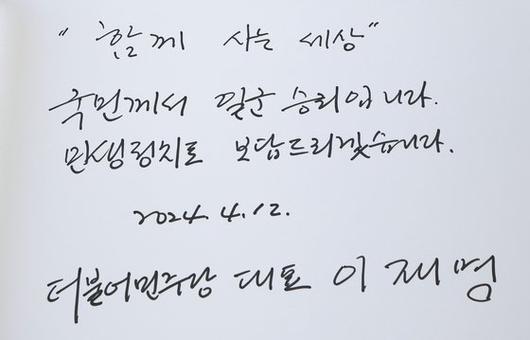 “함께 사는 세상”
국민께서 일군 승리입니다.
민생정치로 보답드리겠습니다.
2024. 4. 12.
더불어민주당 대표 이재명